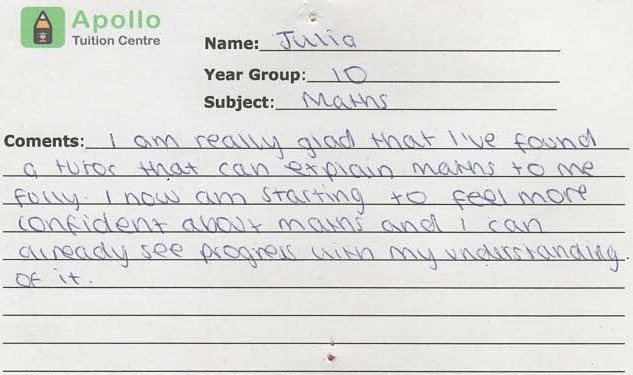 Apollo
Tuition Centre
Name: Julia
Year Group: 10
Subject: Maths
Coments: I am really glad that I've found
a tutor that can explain maths to me
fully. I now am starting to feel more
confident about maths and i can
already see progress with my understanding
of it.